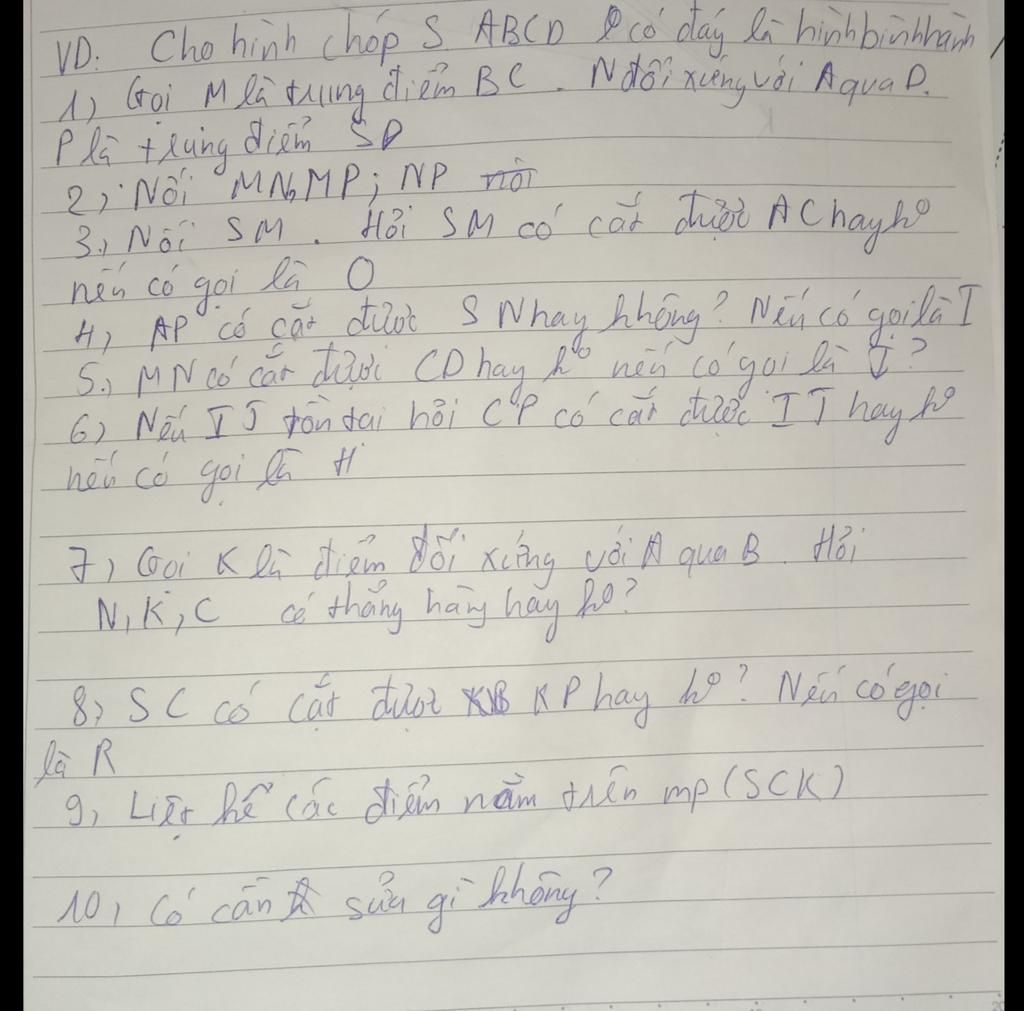 VD. Cho hình chóp S. ABCD có đáy là hình bình hành
1) Gọi M là trung điểm BC. N đối xứng với A qua D.
P là trung điểm SD
2) Nối MN, MP; NP nối
3) Nối SM. Hỏi SM có cắt được AC hay ko
nếu có gọi là O
4) AP có cắt được SN hay không? Nếu có gọi là I
5) MN có cắt được CD hay ko nếu có gọi là J?
6) Nếu IJ tồn tại hỏi CP có cắt được IJ hay ko
nếu có gọi là H
7) Gọi K là điểm đối xứng với A qua B. Hỏi
N, K, C có thẳng hàng hay ko?
8) SC có cắt được KP hay ko? Nếu có gọi
là R
9) Liệt kê các điểm nằm trên mp (SCK)
10) Có cần sửa gì không?